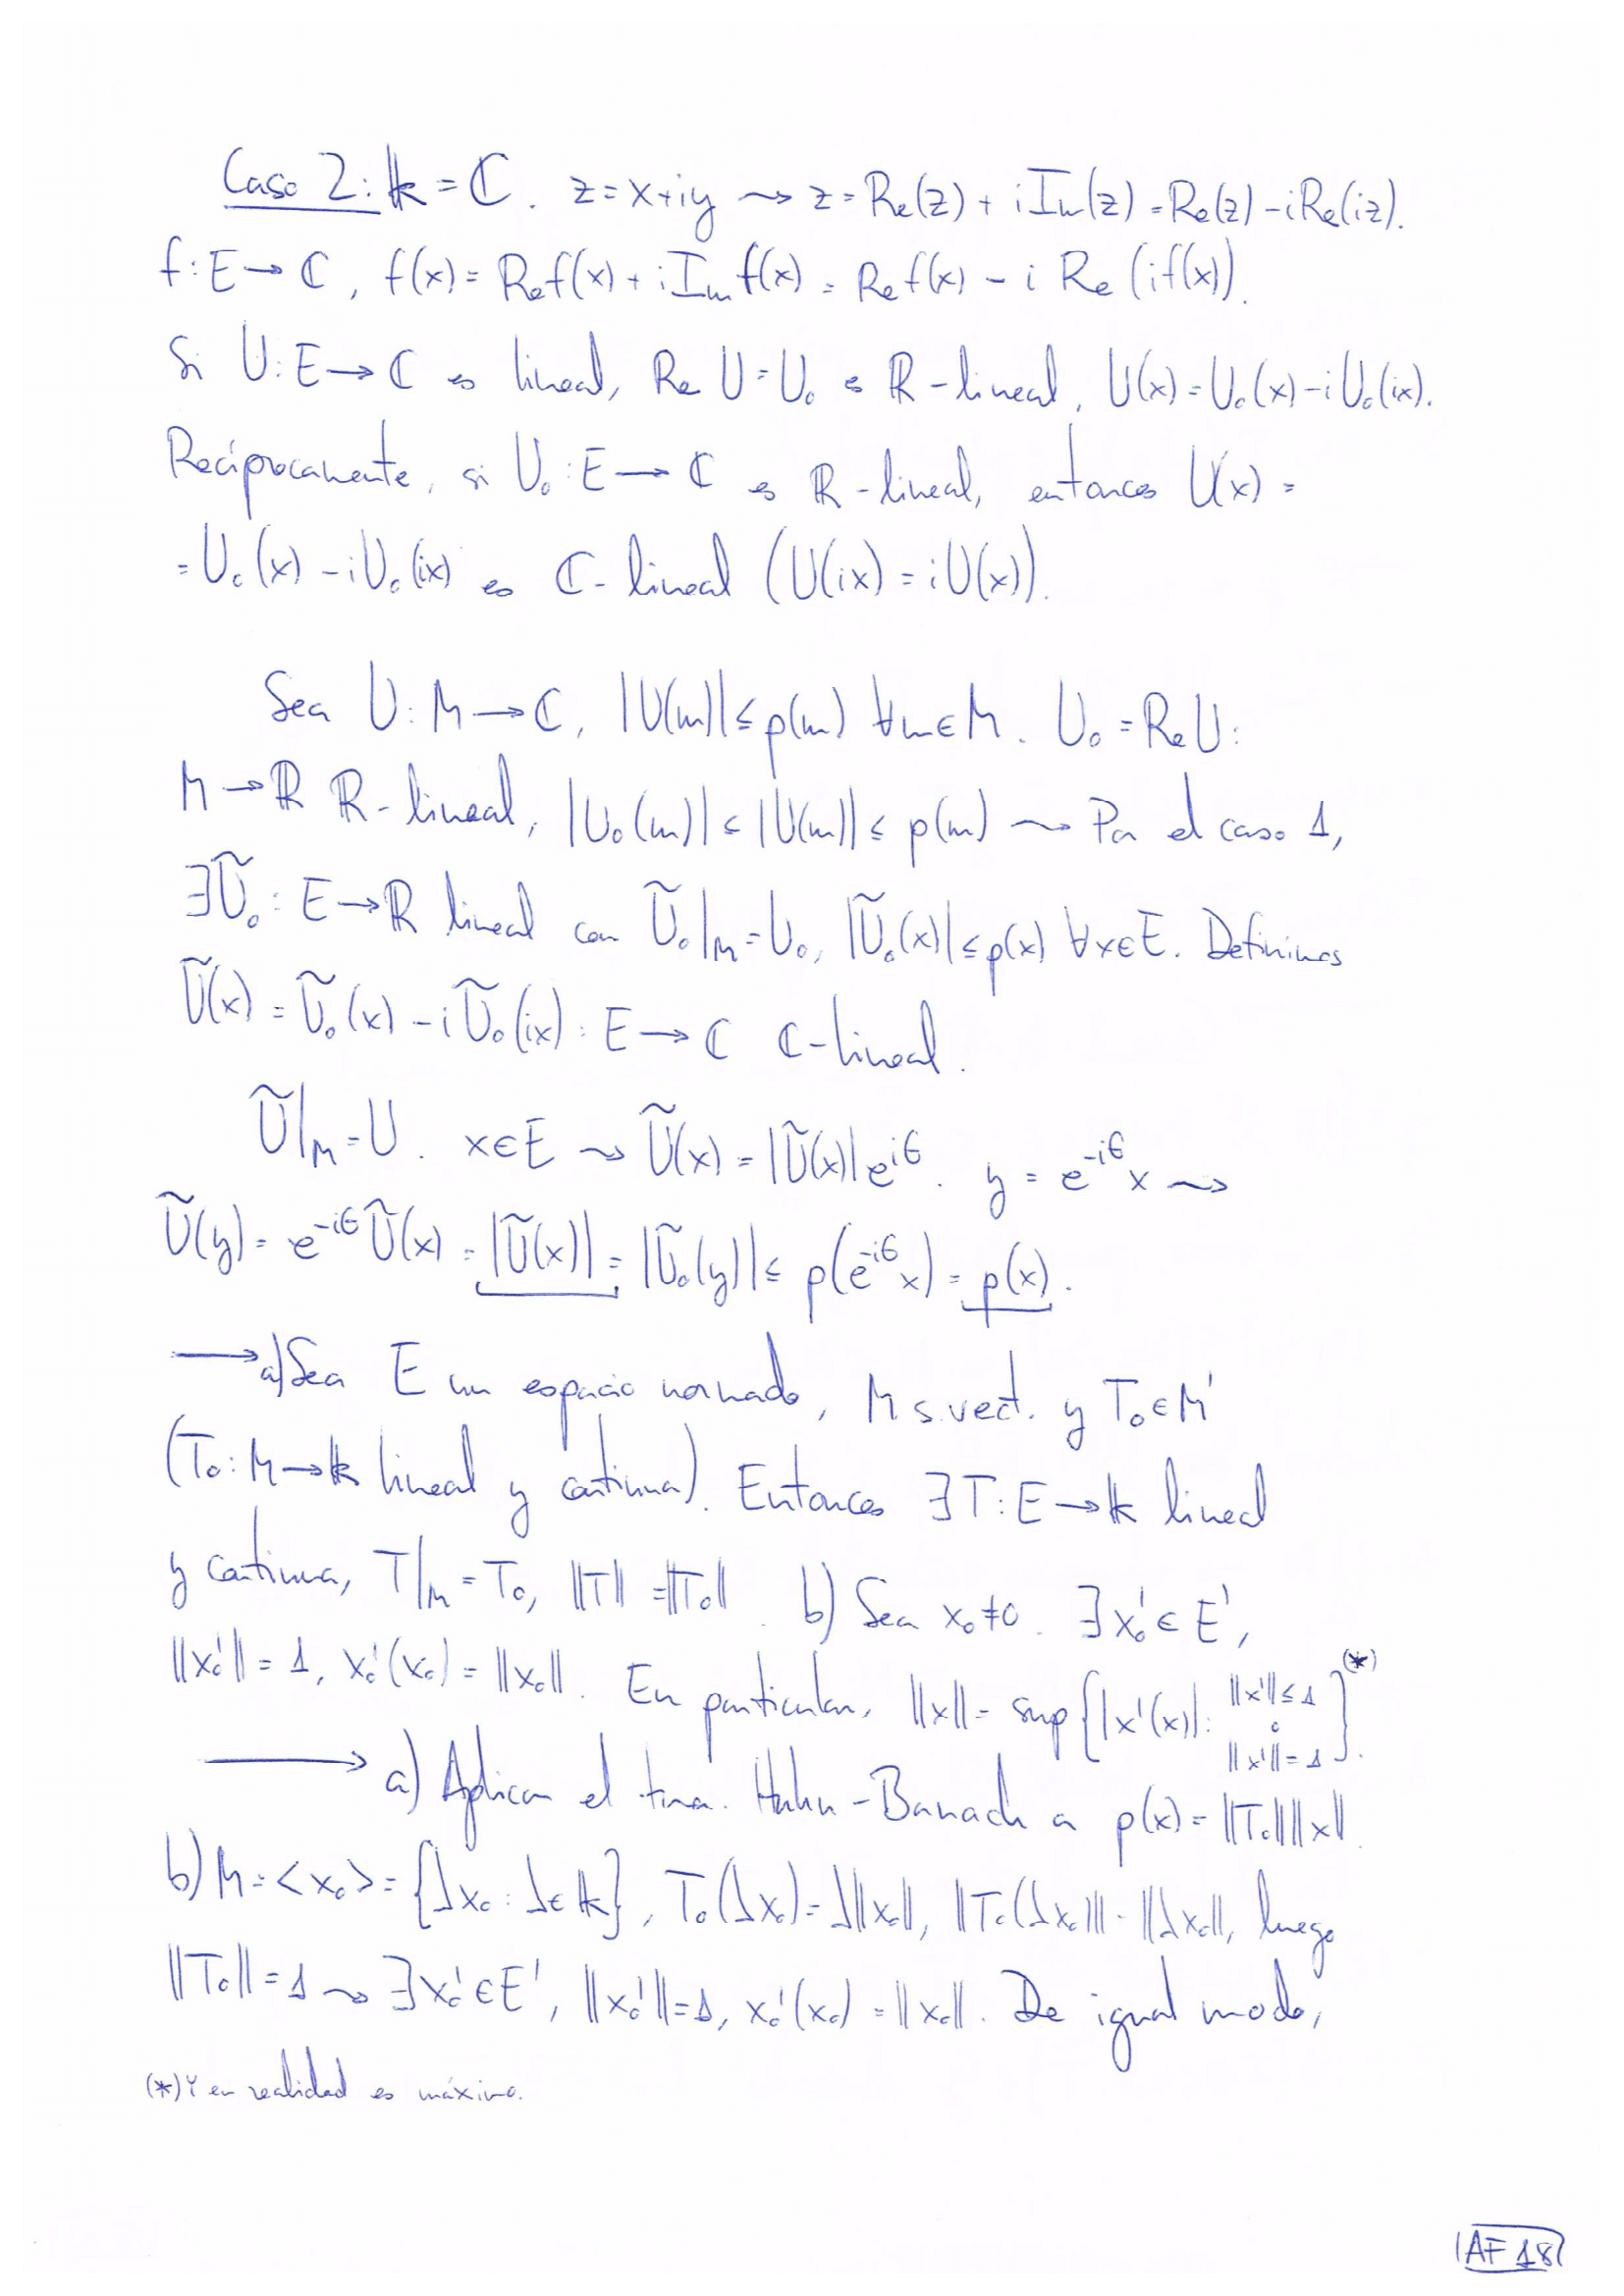 Caso 2: 𝕜 = ℂ. z = x+iy ⤳ z = Re(z) + i Im(z) = Re(z) - i Re(iz).
f: E → ℂ, f(x) = Re f(x) + i Im f(x) = Re f(x) - i Re (i f(x)).
Si U: E → ℂ es lineal, Re U = U₀ es ℝ-lineal, U(x) = U₀(x) - i U₀(ix).
Recíprocamente, si U₀: E → ℂ es ℝ-lineal, entonces U(x) =
= U₀(x) - i U₀(ix) es ℂ-lineal (U(ix) = i U(x)).
Sea U: M → ℂ, |U(m)| ≤ p(m) ∀m∈M. U₀ = Re U:
M → ℝ ℝ-lineal, |U₀(m)| ≤ |U(m)| ≤ p(m) ⤳ Por el caso 1,
∃Ũ₀: E → ℝ lineal con Ũ₀|_M = U₀, |Ũ₀(x)| ≤ p(x) ∀x∈E. Definimos
Ũ(x) = Ũ₀(x) - i Ũ₀(ix): E → ℂ ℂ-lineal.
Ũ|_M = U. x∈E ⤳ Ũ(x) = |Ũ(x)| e^{iθ}. y = e^{-iθ} x ⤳
Ũ(y) = e^{-iθ} Ũ(x) = |Ũ(x)| = |Ũ₀(y)| ≤ p(e^{-iθ} x) = p(x).
⟶ a) Sea E un espacio normado, M s.vect. y T₀ ∈ M'
(T₀: M → 𝕜 lineal y continua). Entonces ∃T: E → 𝕜 lineal
y continua, T|_M = T₀, ||T|| = ||T₀||. b) Sea x₀ ≠ 0. ∃x₀' ∈ E',
||x₀'|| = 1, x₀'(x₀) = ||x₀||. En particular, ||x|| = sup{|x'(x)|: ||x'|| ≤ 1 o ||x'|| = 1}^{(*)}.
⟶ a) Aplicar el tma. Hahn-Banach a p(x) = ||T₀|| ||x||.
b) M = <x₀> = {λx₀ : λ∈𝕜}, T₀(λx₀) = λ||x₀||, ||T₀(λx₀)|| = ||λx₀||, luego
||T₀|| = 1 ⤳ ∃x₀' ∈ E', ||x₀'|| = 1, x₀'(x₀) = ||x₀||. De igual modo,
(*) Y en realidad es máximo.
AF 18